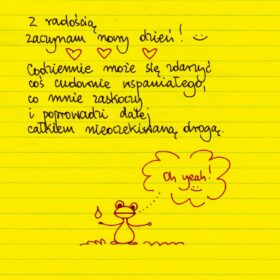 Z radością
zaczynam nowy dzień!
Codziennie może się zdarzyć
coś cudownie wspaniałego,
co mnie zaskoczy
i poprowadzi dalej
całkiem nieoczekiwaną drogą.
Oh yeah!